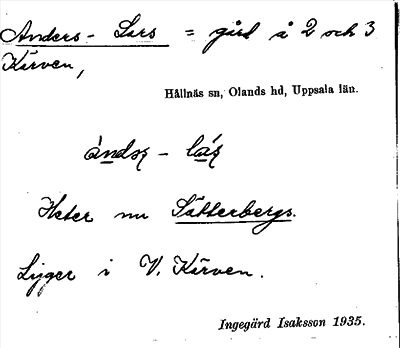 Anders-Lars = gård å 2 och 3
Kärven,
Hållnäs sn, Olands hd, Uppsala län.
Heter nu Sätterbergs.
Ligger i V. Kärven.
Ingegärd Isaksson 1935.